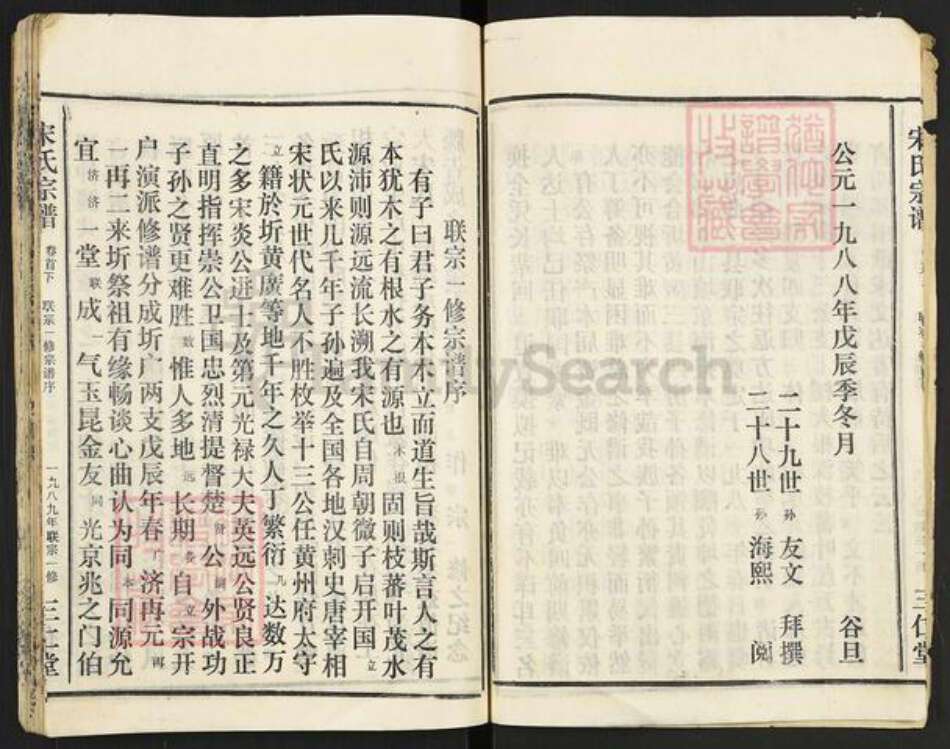 宋氏宗谱
三仁堂
公元一九八八年戊辰季冬月 谷旦
二十九世孙 友文 拜撰
二十八世孙 海熙 阅
联宗一修宗谱序
有子曰君子务本木立而道生旨哉斯言人之有
本犹木之有根水之有源也木根固则枝蕃叶茂水
源沛则源远流长溯我宋氏自周朝微子启开国立
氏以来几千年子孙遍及全国各地汉刺史唐宰相
宋状元世代名人不胜枚举十三公任黄州府太守
立籍於圻黄广等地千年之久人丁繁衍几达数万
之多宋炎公进士及第元光禄大夫英远公贤良正
直明指挥崇公卫国忠烈清提督楚公外战功
子孙之贤更难胜数惟人多地远长期各自立宗开
户演派修谱分成圻广两支戊辰年春广济再元
一再二来圻祭祖有缘畅谈心曲认为同本同源允
宜济济一堂联成一气玉昆金友同光京兆之门伯
宋氏宗谱 卷首下 联宗一修宗谱序 一九八九年联宗一修 三仁堂
MySearch